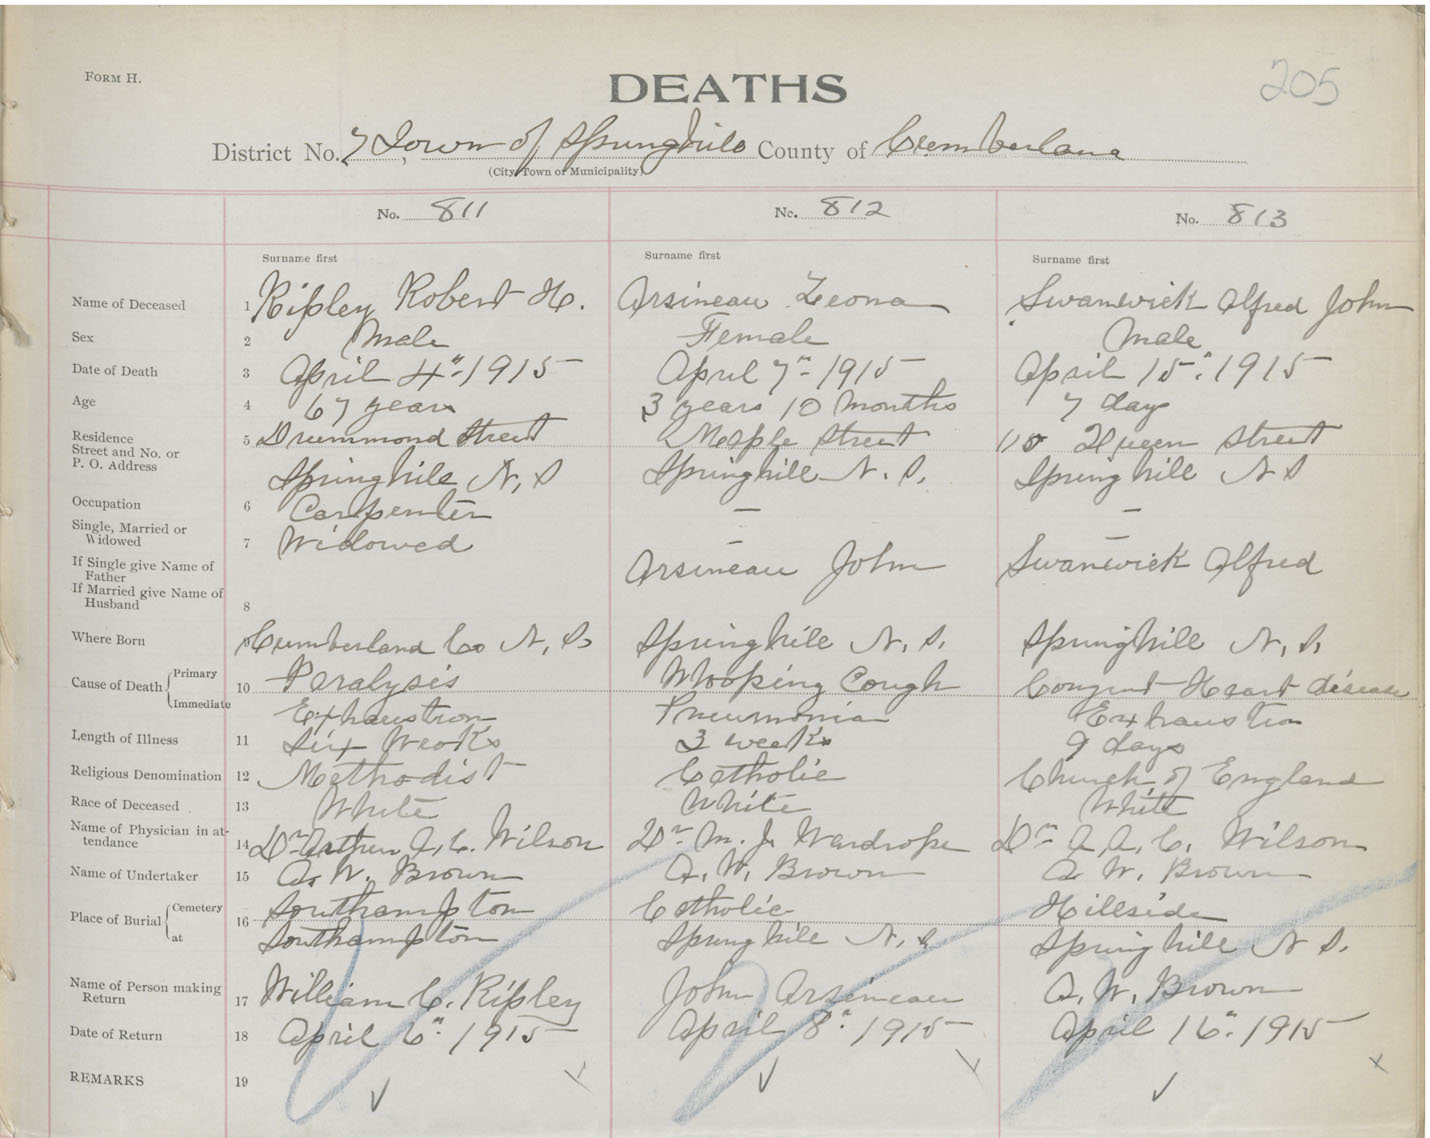 FORM H.
DEATHS
205
District No. 7, Town of Springhill County of Cumberland
(City, Town or Municipality)
No. 811 No. 812 No. 813
Surname first Surname first Surname first
Name of Deceased 1 Ripley Robert H. Arsineau Leona Swanwick Alfred John
Sex 2 Male Female Male
Date of Death 3 April 4" 1915 April 7" 1915 April 15" 1915
Age 4 67 years 3 years 10 Months 7 days
Residence Street and No. or P. O. Address 5 Drummond Street Maple Street 110 Queen Street
Springhill N, S Springhill N. S. Springhill N S
Occupation 6 Carpenter — —
Single, Married or Widowed 7 Widowed — —
If Single give Name of Father Arsineau John Swanwick Alfred
If Married give Name of Husband 8
Where Born Cumberland Co N, S. Springhill N, S. Springhill N, S.
Cause of Death Primary 10 Paralysis Whooping Cough Congent Heart disease
Immediate Exhaustion Pneumonia Exhaustion
Length of Illness 11 Six Weeks 3 weeks 9 days
Religious Denomination 12 Methodist Catholic Church of England
Race of Deceased 13 White White White
Name of Physician in attendance 14 Dr Arthur A, C. Wilson Dr M. J. Wardrope Dr A. A, C, Wilson
Name of Undertaker 15 A. W. Brown A, W, Brown A. W, Brown
Place of Burial Cemetery 16 Southampton Catholic Hillside
at Southampton Springhill N, S Springhill N S.
Name of Person making Return 17 William C. Ripley John Arsineau A, W, Brown
Date of Return 18 April 6" 1915 April 8" 1915 April 16" 1915
REMARKS 19